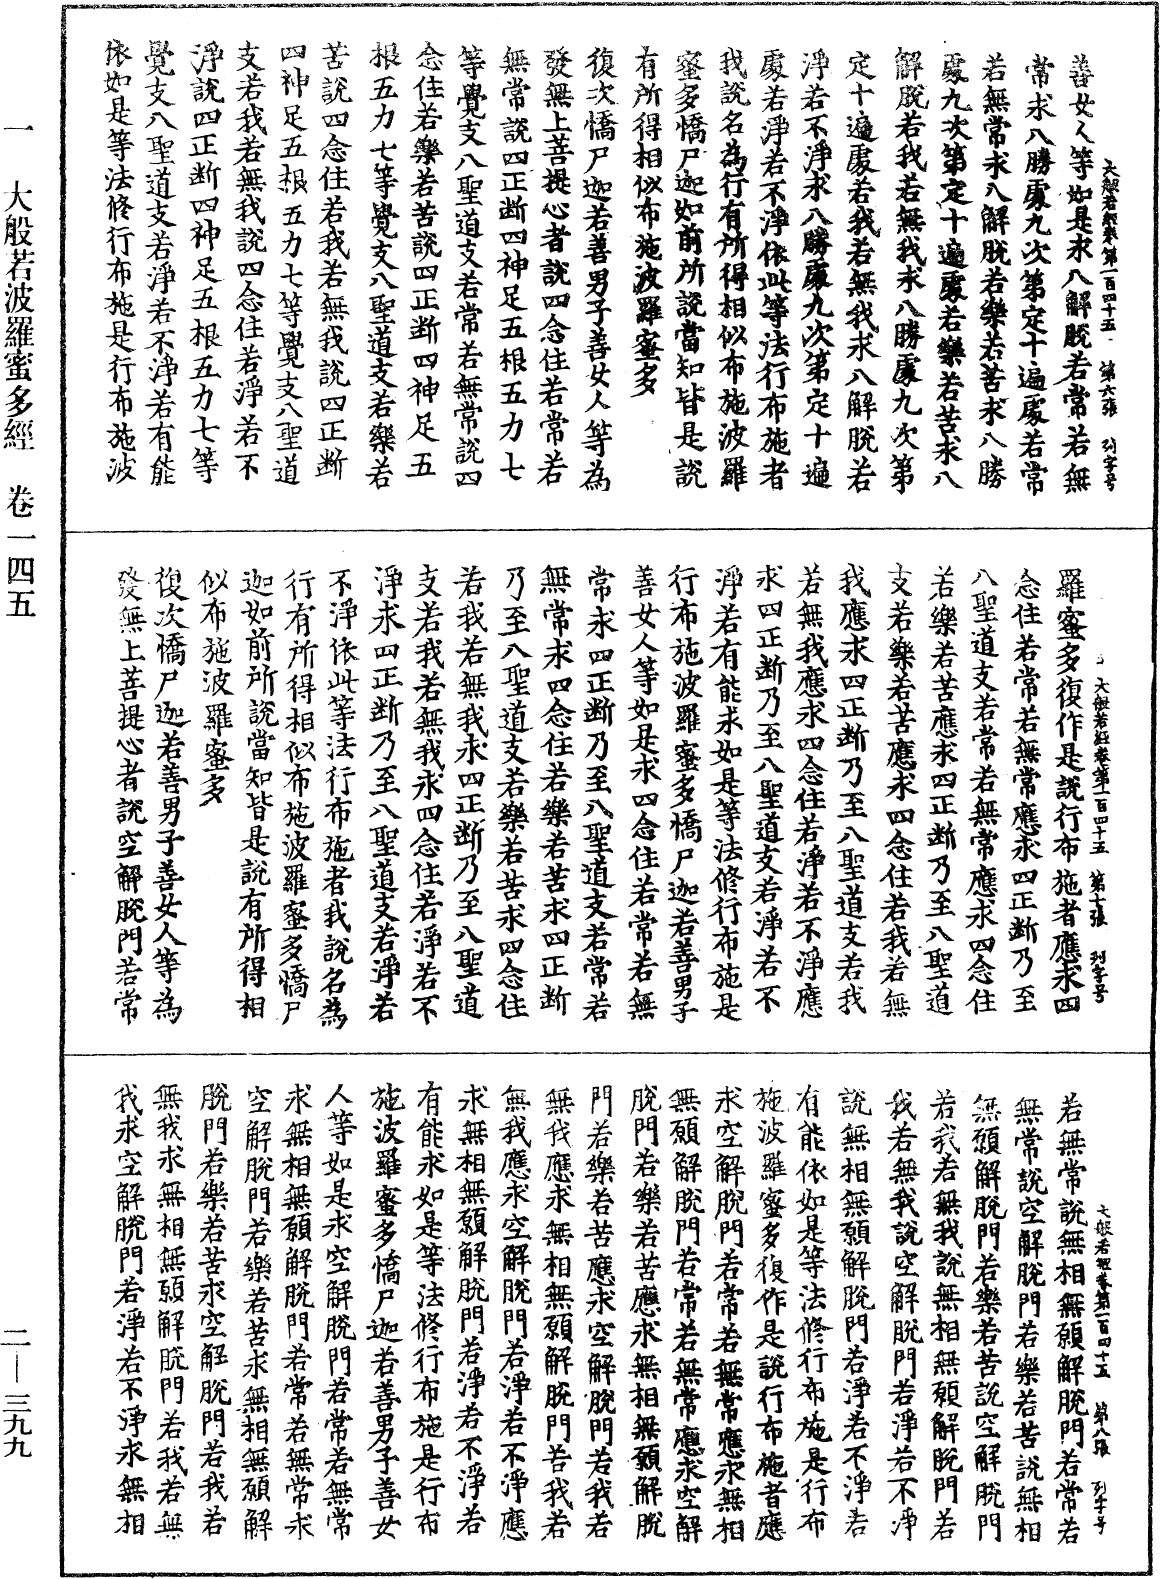 大般若經卷第一百四十五　第六張　列字号
善女人等如是求八解脫若常若無
常求八勝處九次第定十遍處若常
若無常求八解脫若樂若苦求八勝
處九次第定十遍處若樂若苦求八
解脫若我若無我求八勝處九次第
定十遍處若我若無我求八解脫若
淨若不淨求八勝處九次第定十遍
處若淨若不淨依此等法行布施者
我說名為行有所得相似布施波羅
蜜多憍尸迦如前所說當知皆是說
有所得相似布施波羅蜜多
復次憍尸迦若善男子善女人等為
發無上菩提心者說四念住若常若
無常說四正斷四神足五根五力七
等覺支八聖道支若常若無常說四
念住若樂若苦說四正斷四神足五
根五力七等覺支八聖道支若樂若
苦說四念住若我若無我說四正斷
四神足五根五力七等覺支八聖道
支若我若無我說四念住若淨若不
淨說四正斷四神足五根五力七等
覺支八聖道支若淨若不淨若有能
依如是等法修行布施是行布施波
大般若經卷第一百四十五　第七張　列字号
羅蜜多復作是說行布施者應求四
念住若常若無常應求四正斷乃至
八聖道支若常若無常應求四念住
若樂若苦應求四正斷乃至八聖道
支若樂若苦應求四念住若我若無
我應求四正斷乃至八聖道支若我
若無我應求四念住若淨若不淨應
求四正斷乃至八聖道支若淨若不
淨若有能求如是等法修行布施是
行布施波羅蜜多憍尸迦若善男子
善女人等如是求四念住若常若無
常求四正斷乃至八聖道支若常若
無常求四念住若樂若苦求四正斷
乃至八聖道支若樂若苦求四念住
若我若無我求四正斷乃至八聖道
支若我若無我求四念住若淨若不
淨求四正斷乃至八聖道支若淨若
不淨依此等法行布施者我說名為
行有所得相似布施波羅蜜多憍尸
迦如前所說當知皆是說有所得相
似布施波羅蜜多
復次憍尸迦若善男子善女人等為
發無上菩提心者說空解脫門若常
大般若經卷第一百四十五　第八張　列字号
若無常說無相無願解脫門若常若
無常說空解脫門若樂若苦說無相
無願解脫門若樂若苦說空解脫門
若我若無我說無相無願解脫門若
我若無我說空解脫門若淨若不淨
說無相無願解脫門若淨若不淨若
有能依如是等法修行布施是行布
施波羅蜜多復作是說行布施者應
求空解脫門若常若無常應求無相
無願解脫門若常若無常應求空解
脫門若樂若苦應求無相無願解脫
門若樂若苦應求空解脫門若我若
無我應求無相無願解脫門若我若
無我應求空解脫門若淨若不淨應
求無相無願解脫門若淨若不淨若
有能求如是等法修行布施是行布
施波羅蜜多憍尸迦若善男子善女
人等如是求空解脫門若常若無常
求無相無願解脫門若常若無常求
空解脫門若樂若苦求無相無願解
脫門若樂若苦求空解脫門若我若
無我求無相無願解脫門若我若無
我求空解脫門若淨若不淨求無相
一　大般若波羅蜜多經　卷一四五
二—三九九